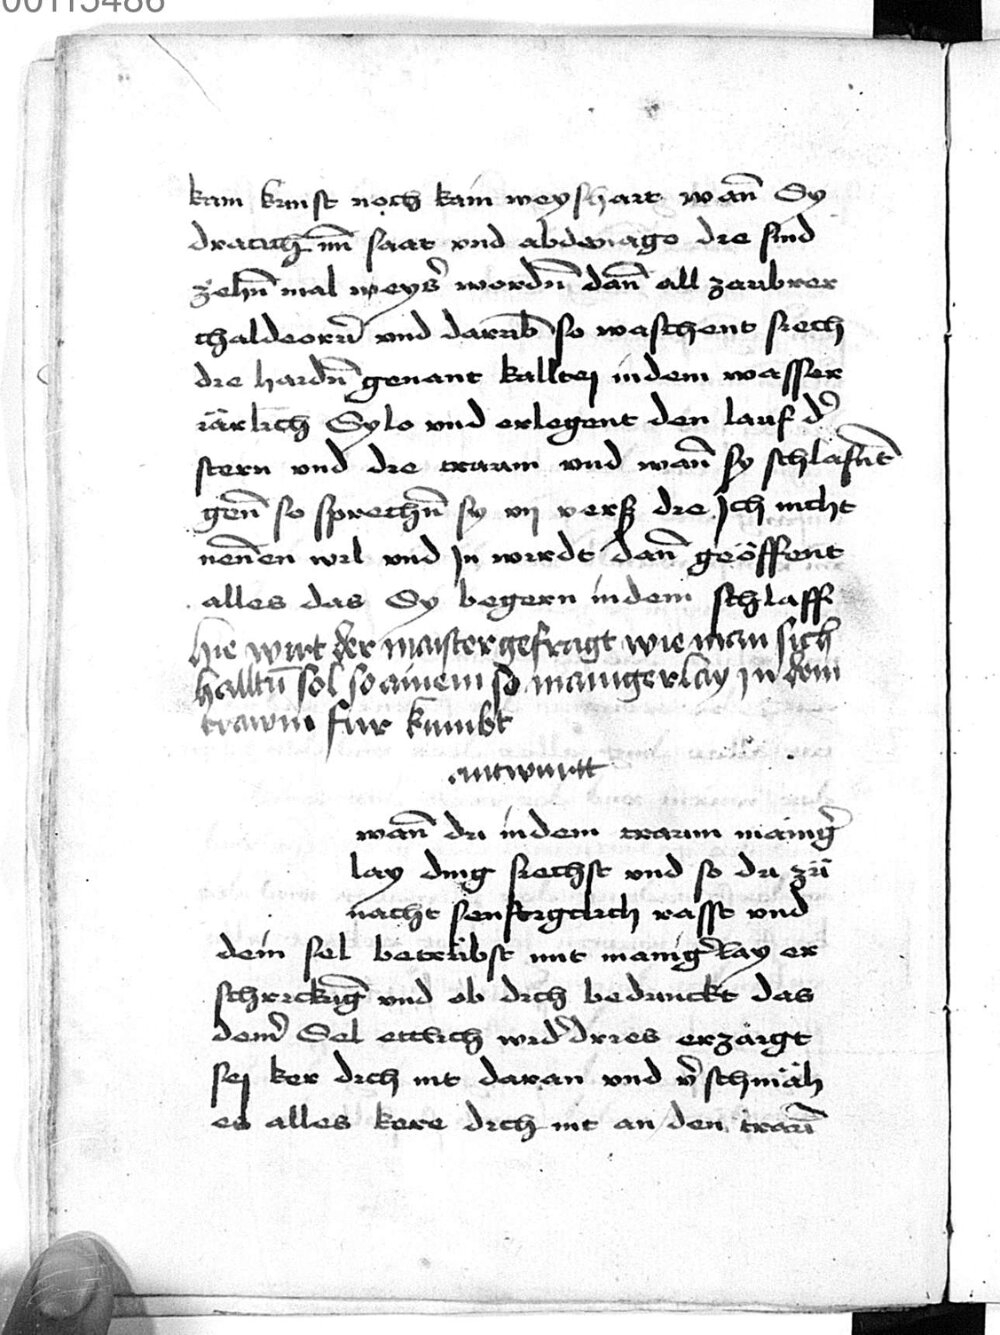 00115486
kain kunst noch kain weyshait wan̄ Sy
drach im̄ saat vnd abdenago die sind
zehn̄ mal weyſ᷑ wordn̄ dan̄ all zaubrer
chaldeorū vnd darūb so waschent siech
die haidn̄ genant kalltej indem wasser
iärlich Sylo vnd erlegent den lauf d᷑
stern vnd die traum vnd wan̄ sy schlafn̄t
gen̄ so sprechn̄ sy vij verß die Jch nicht
nen̄en wil vnd Jn wirdt dan̄ geöffent
alles das Sy begern indem schlaff
Hie wirt der maister gefragt wie man sich
halltn̄ sol so ainem so mainigerlay jn dem
trawm fur kumbt
antwurtt
wan̄ du indem traum mainig᷑
lay ding siechst vnd so du zů
nacht senftigclich rasst vnd
dein sel betrübst mit mainig᷑lay er
schrickūg vnd ob dich beduncket das
dein᷑ Sel ettlich wid᷑dries erzaigt
sej ker dich nit daran vnd v᷑schmäh
es alles kere dich nit an den traū